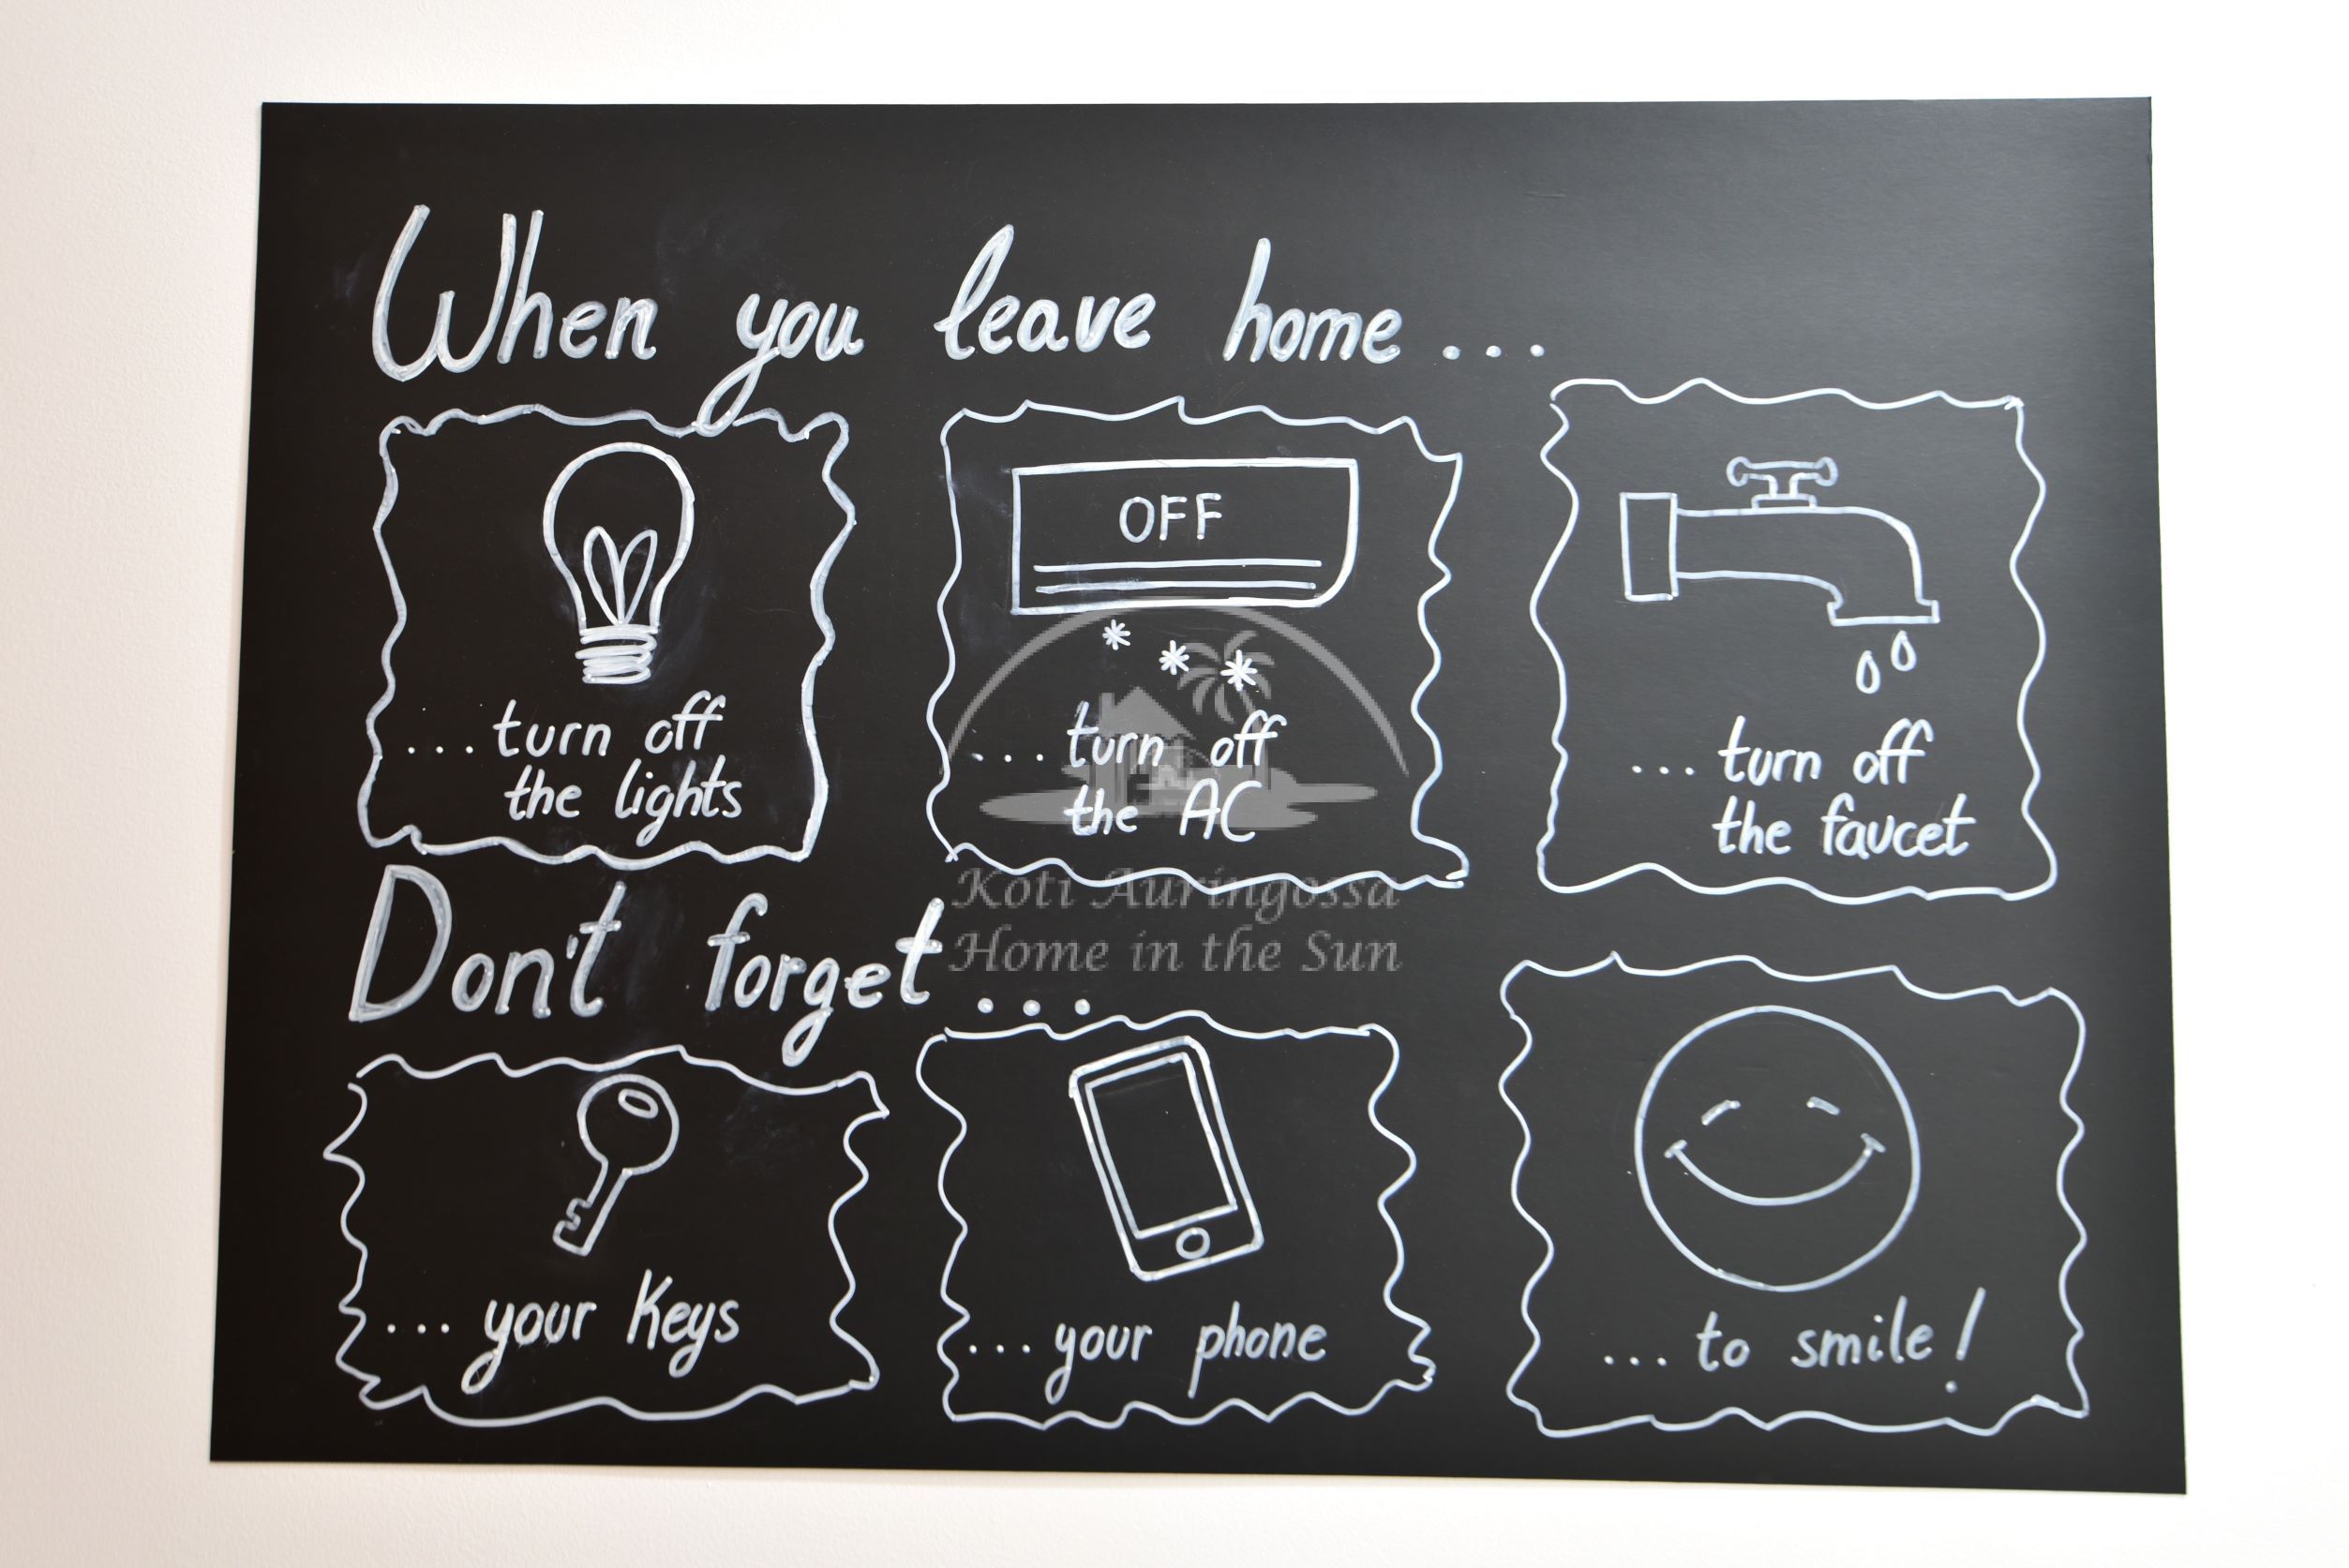 When you leave home...
OFF
...turn off
the lights
...turn off
the AC
...turn off
the faucet
Koti Auringossa
Home in the Sun
Don't forget...
...your Keys
...your phone
...to smile!